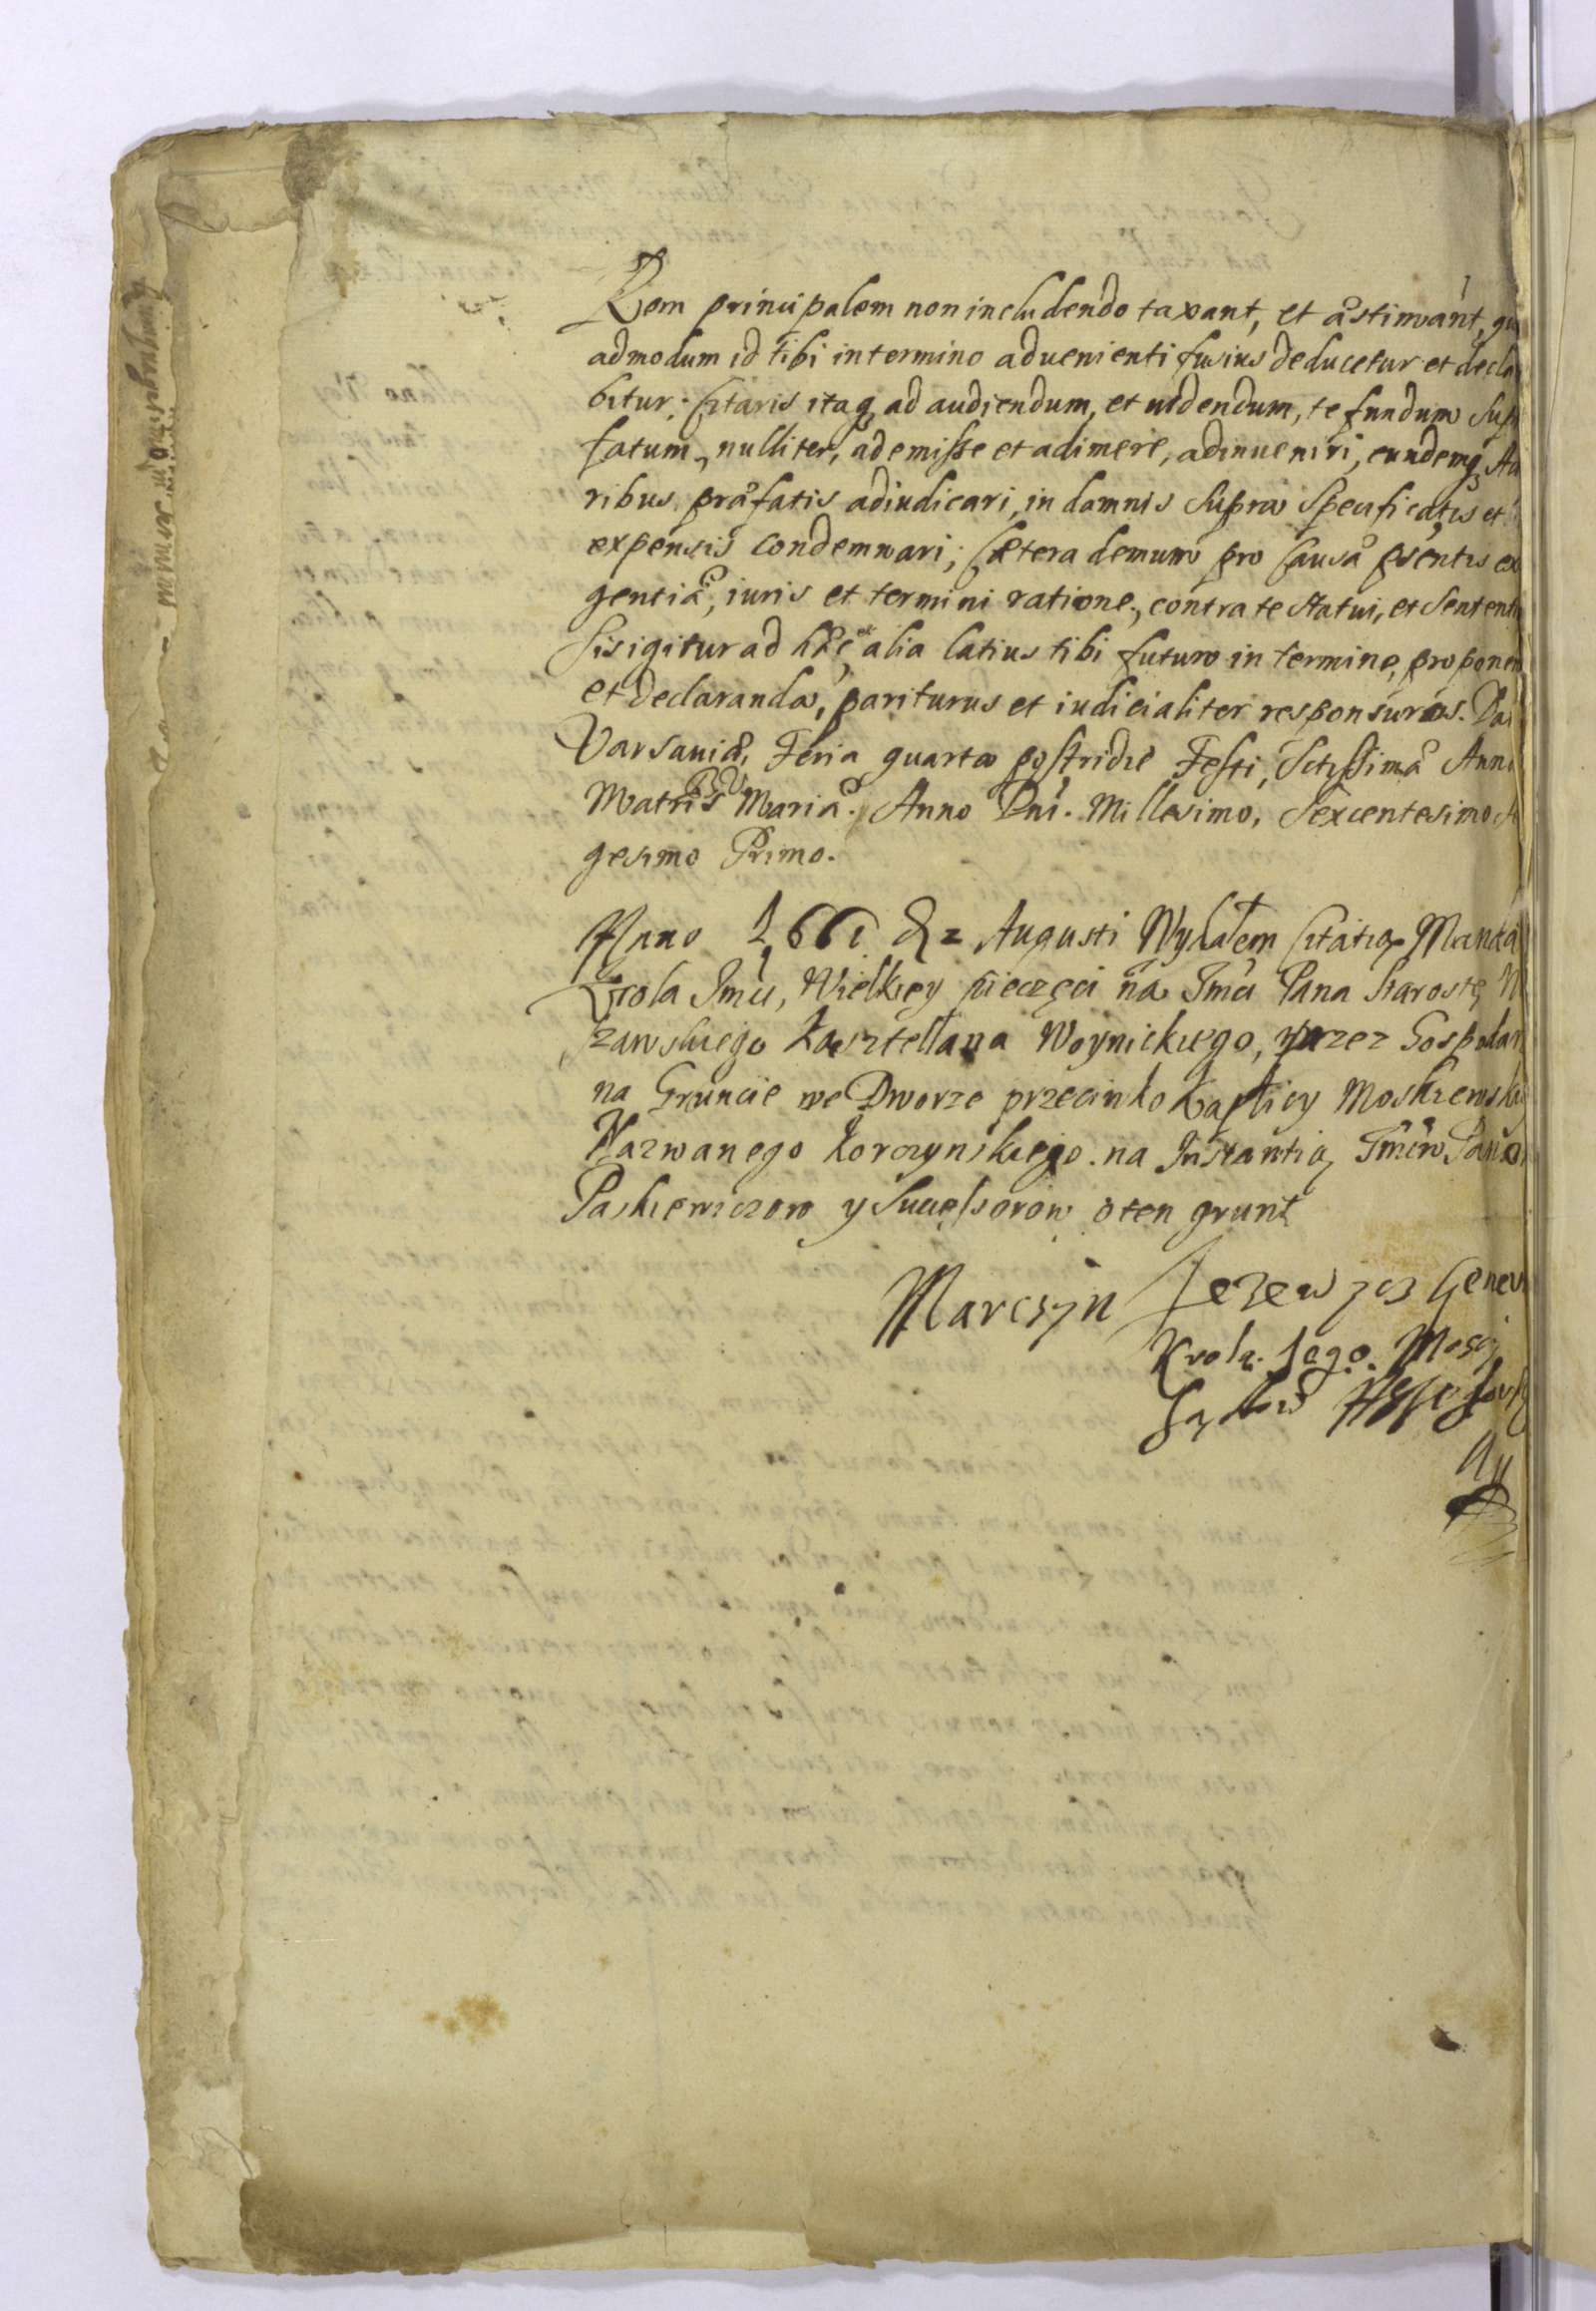 Rem principalem non includendo taxant, et æstimant, qu
admodum id tibi in termino aduenienti fusius deducetur et decla
bitur; Citaris itaq ad audiendum, et uidendum, te fundum sup
fatum, nulliter, ademisse et adimere, adinueniri, eundemq Acto
ribus præfatis adiudicari, in damnis supra specificatis et
expensis condemnari; Cætera demum pro causæ psentis ex
gentia, iuris et termini ratione, contra te statui, et sententi
sis igitur ad hæc et alia latius tibi futuro in termino, proponen
et declaranda, pariturus et iudicialiter responsurus. Da
Varsauiæ, Feria quarta postridie Festi, Sctissimæ Annæ
Matris BV Mariæ. Anno Dni. Millesimo, Sexcentesimo, S
gesimo Primo.
Anno 1661 d 2 Augusti Wydałem Citatią Manda
Krola Jmci, Wielkiey pieczęci na Jmci Pana Starostę W
szawskiego Kasztellana Woynickiego, przez Gospodar
na Gruncie we Dworze przeciwko Kaplicy Moskiewski
Nazwanego Korczynskiego. na Instantią Jmciw Panow
Paskiewiczow y Successorow o ten grunt
Marcszyn Jezewycz Gener
Krola. Jego. Mosci